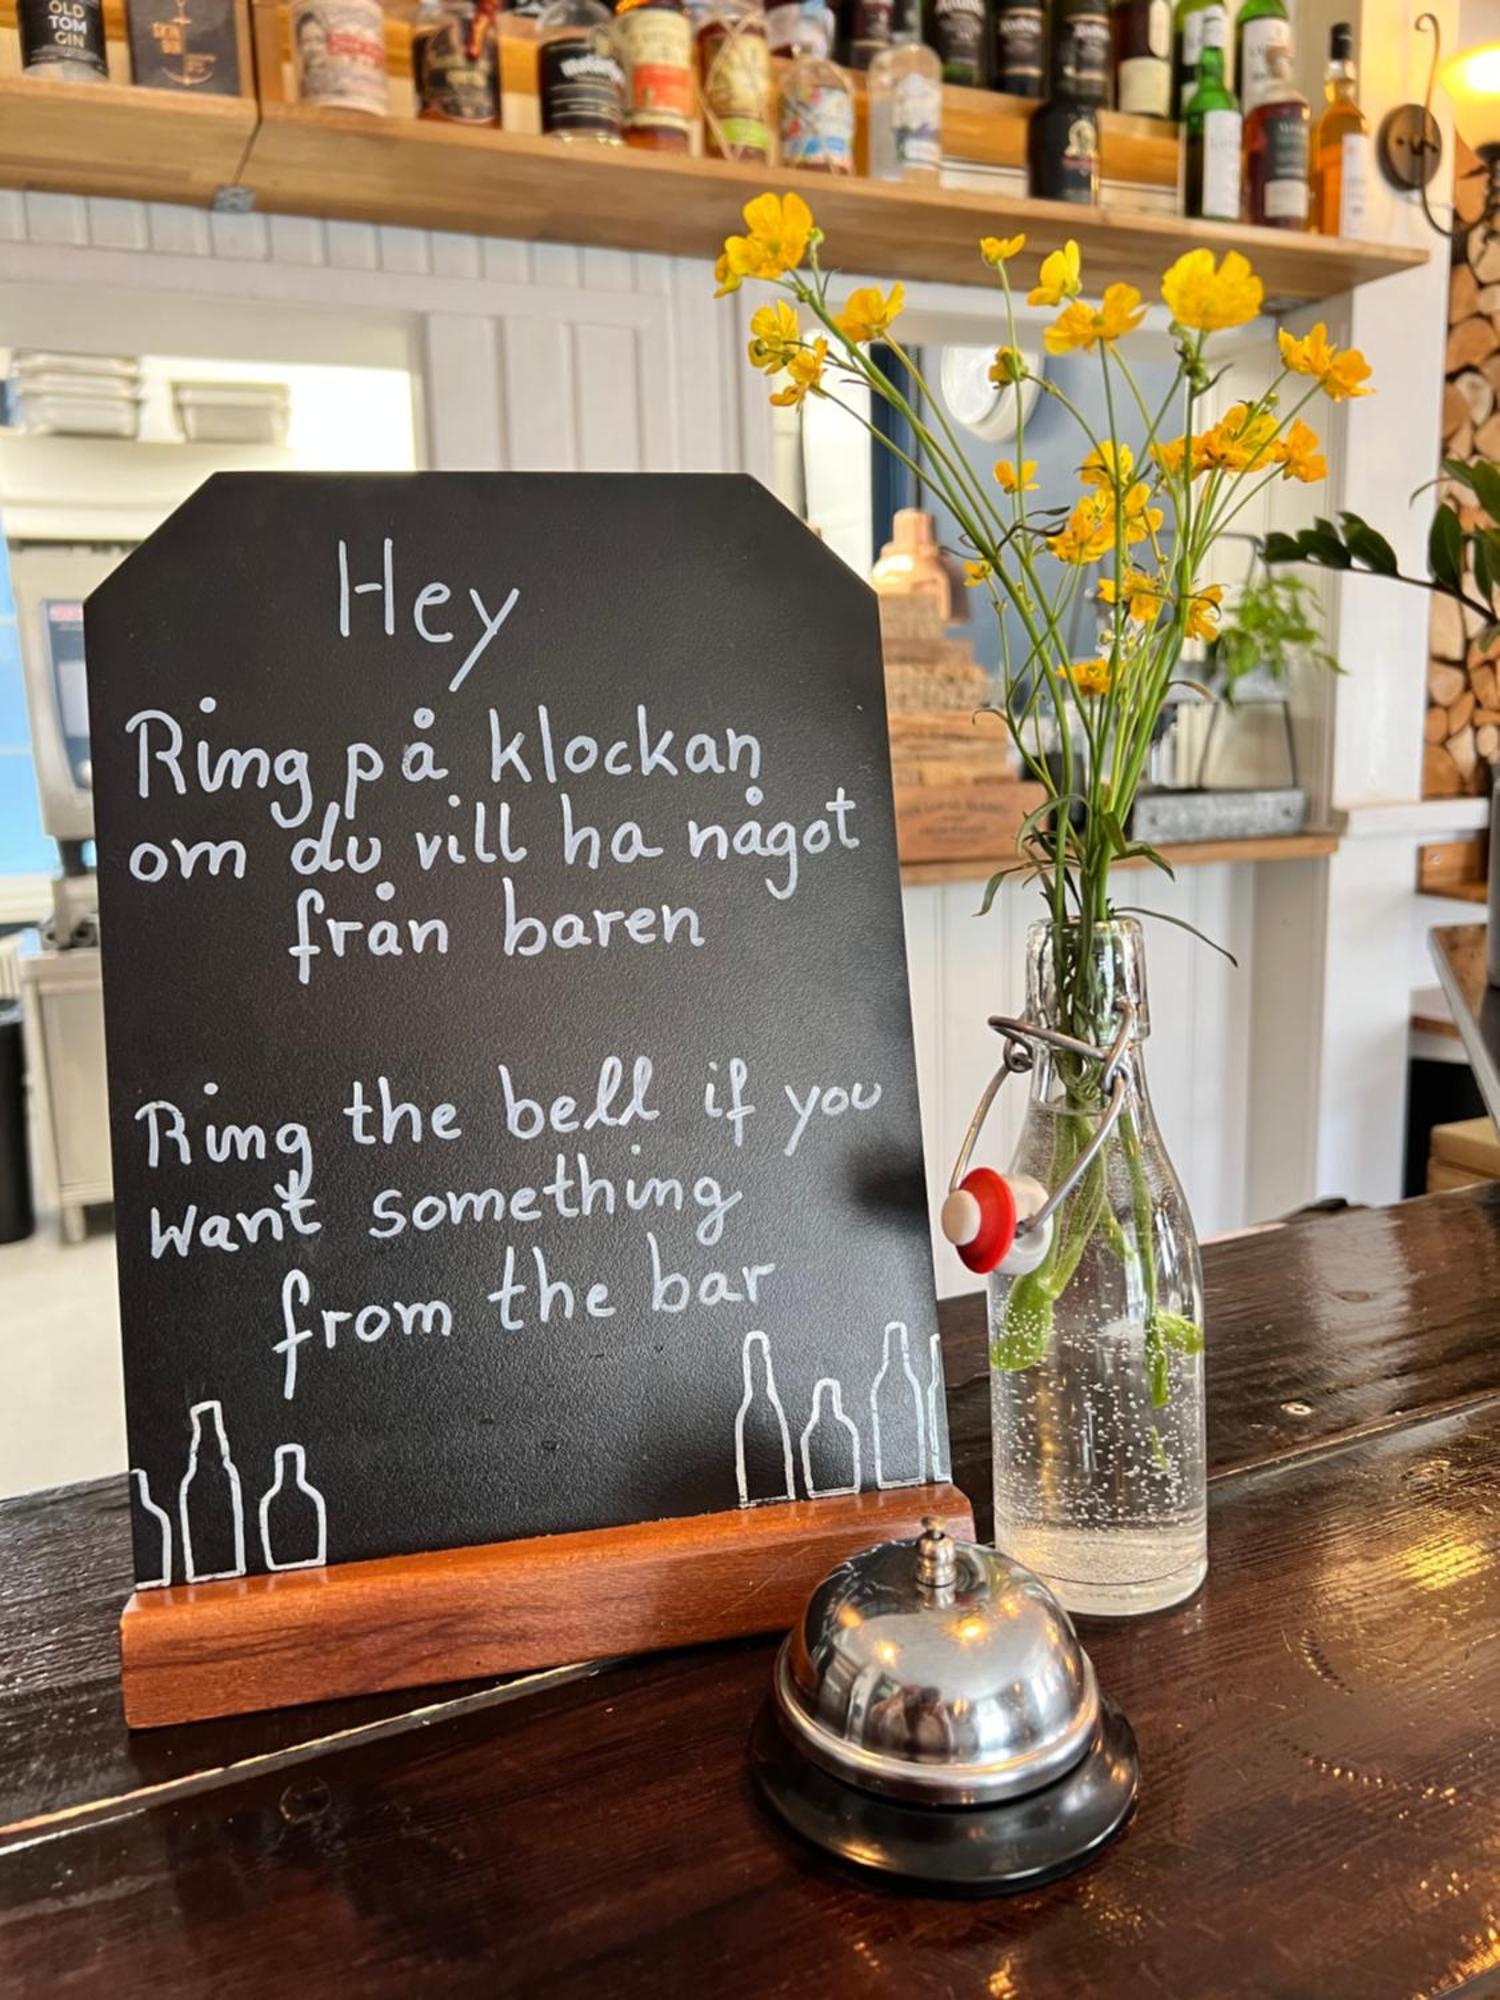 OLD
TOM
GIN
Hey
Ring på klockan
om du vill ha något
från baren
Ring the bell if you
want something
from the bar